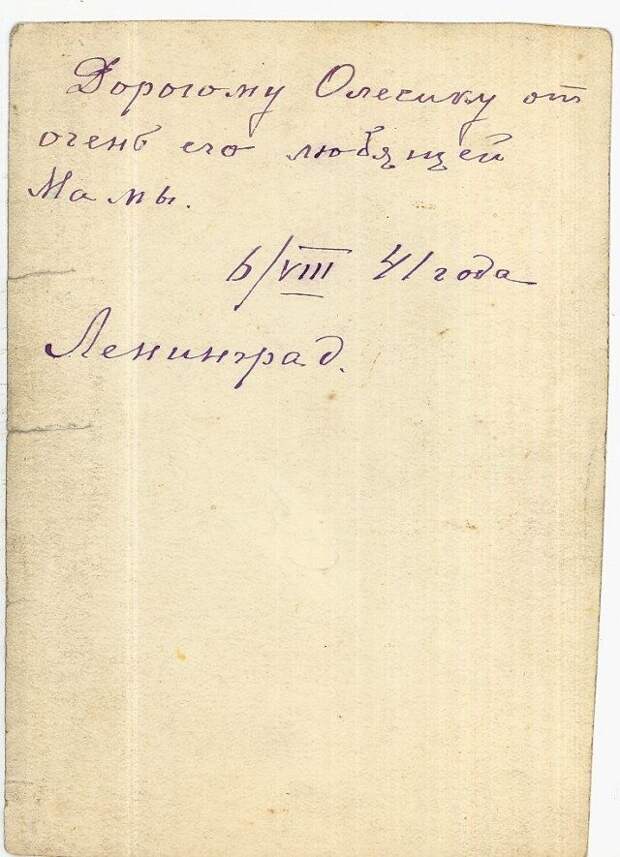 Дорогому Олесику от
очень его любящей
Мамы.
6/VIII 41 года
Ленинград.